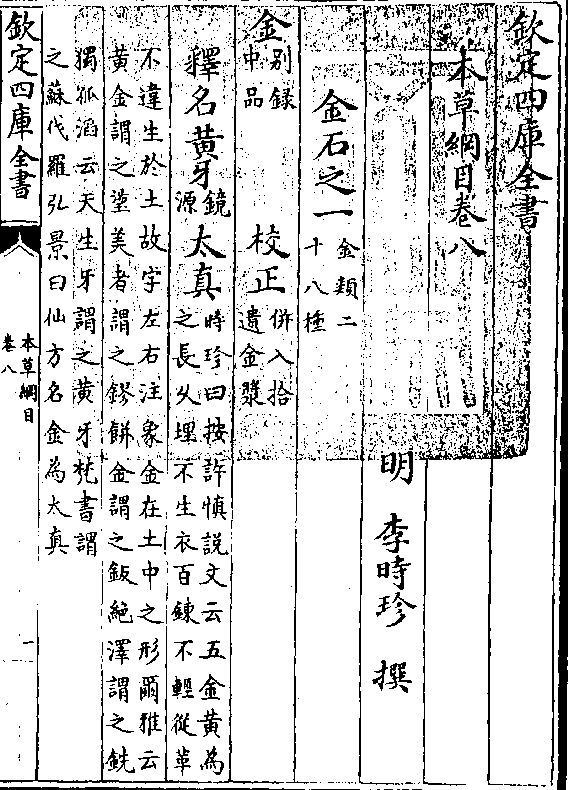 欽定四庫全書
本草綱目卷八
明 李時珍 撰
金石之一
金類二
十八種
金
別錄
中品
校正
併入拾
遺金漿
釋名黃牙
鏡
源
太真
時珍曰按許慎說文云五金黃為
之長久埋不生衣百鍊不輕從革
不違生於土故字左右注象金在土中之形爾雅云
黃金謂之璗美者謂之鏐餅金謂之鈑絕澤謂之銑
獨孤滔云天生牙謂之黃牙梵書謂
之蘇伐羅弘景曰仙方名金為太真
欽定四庫全書
本草綱目
卷八
一